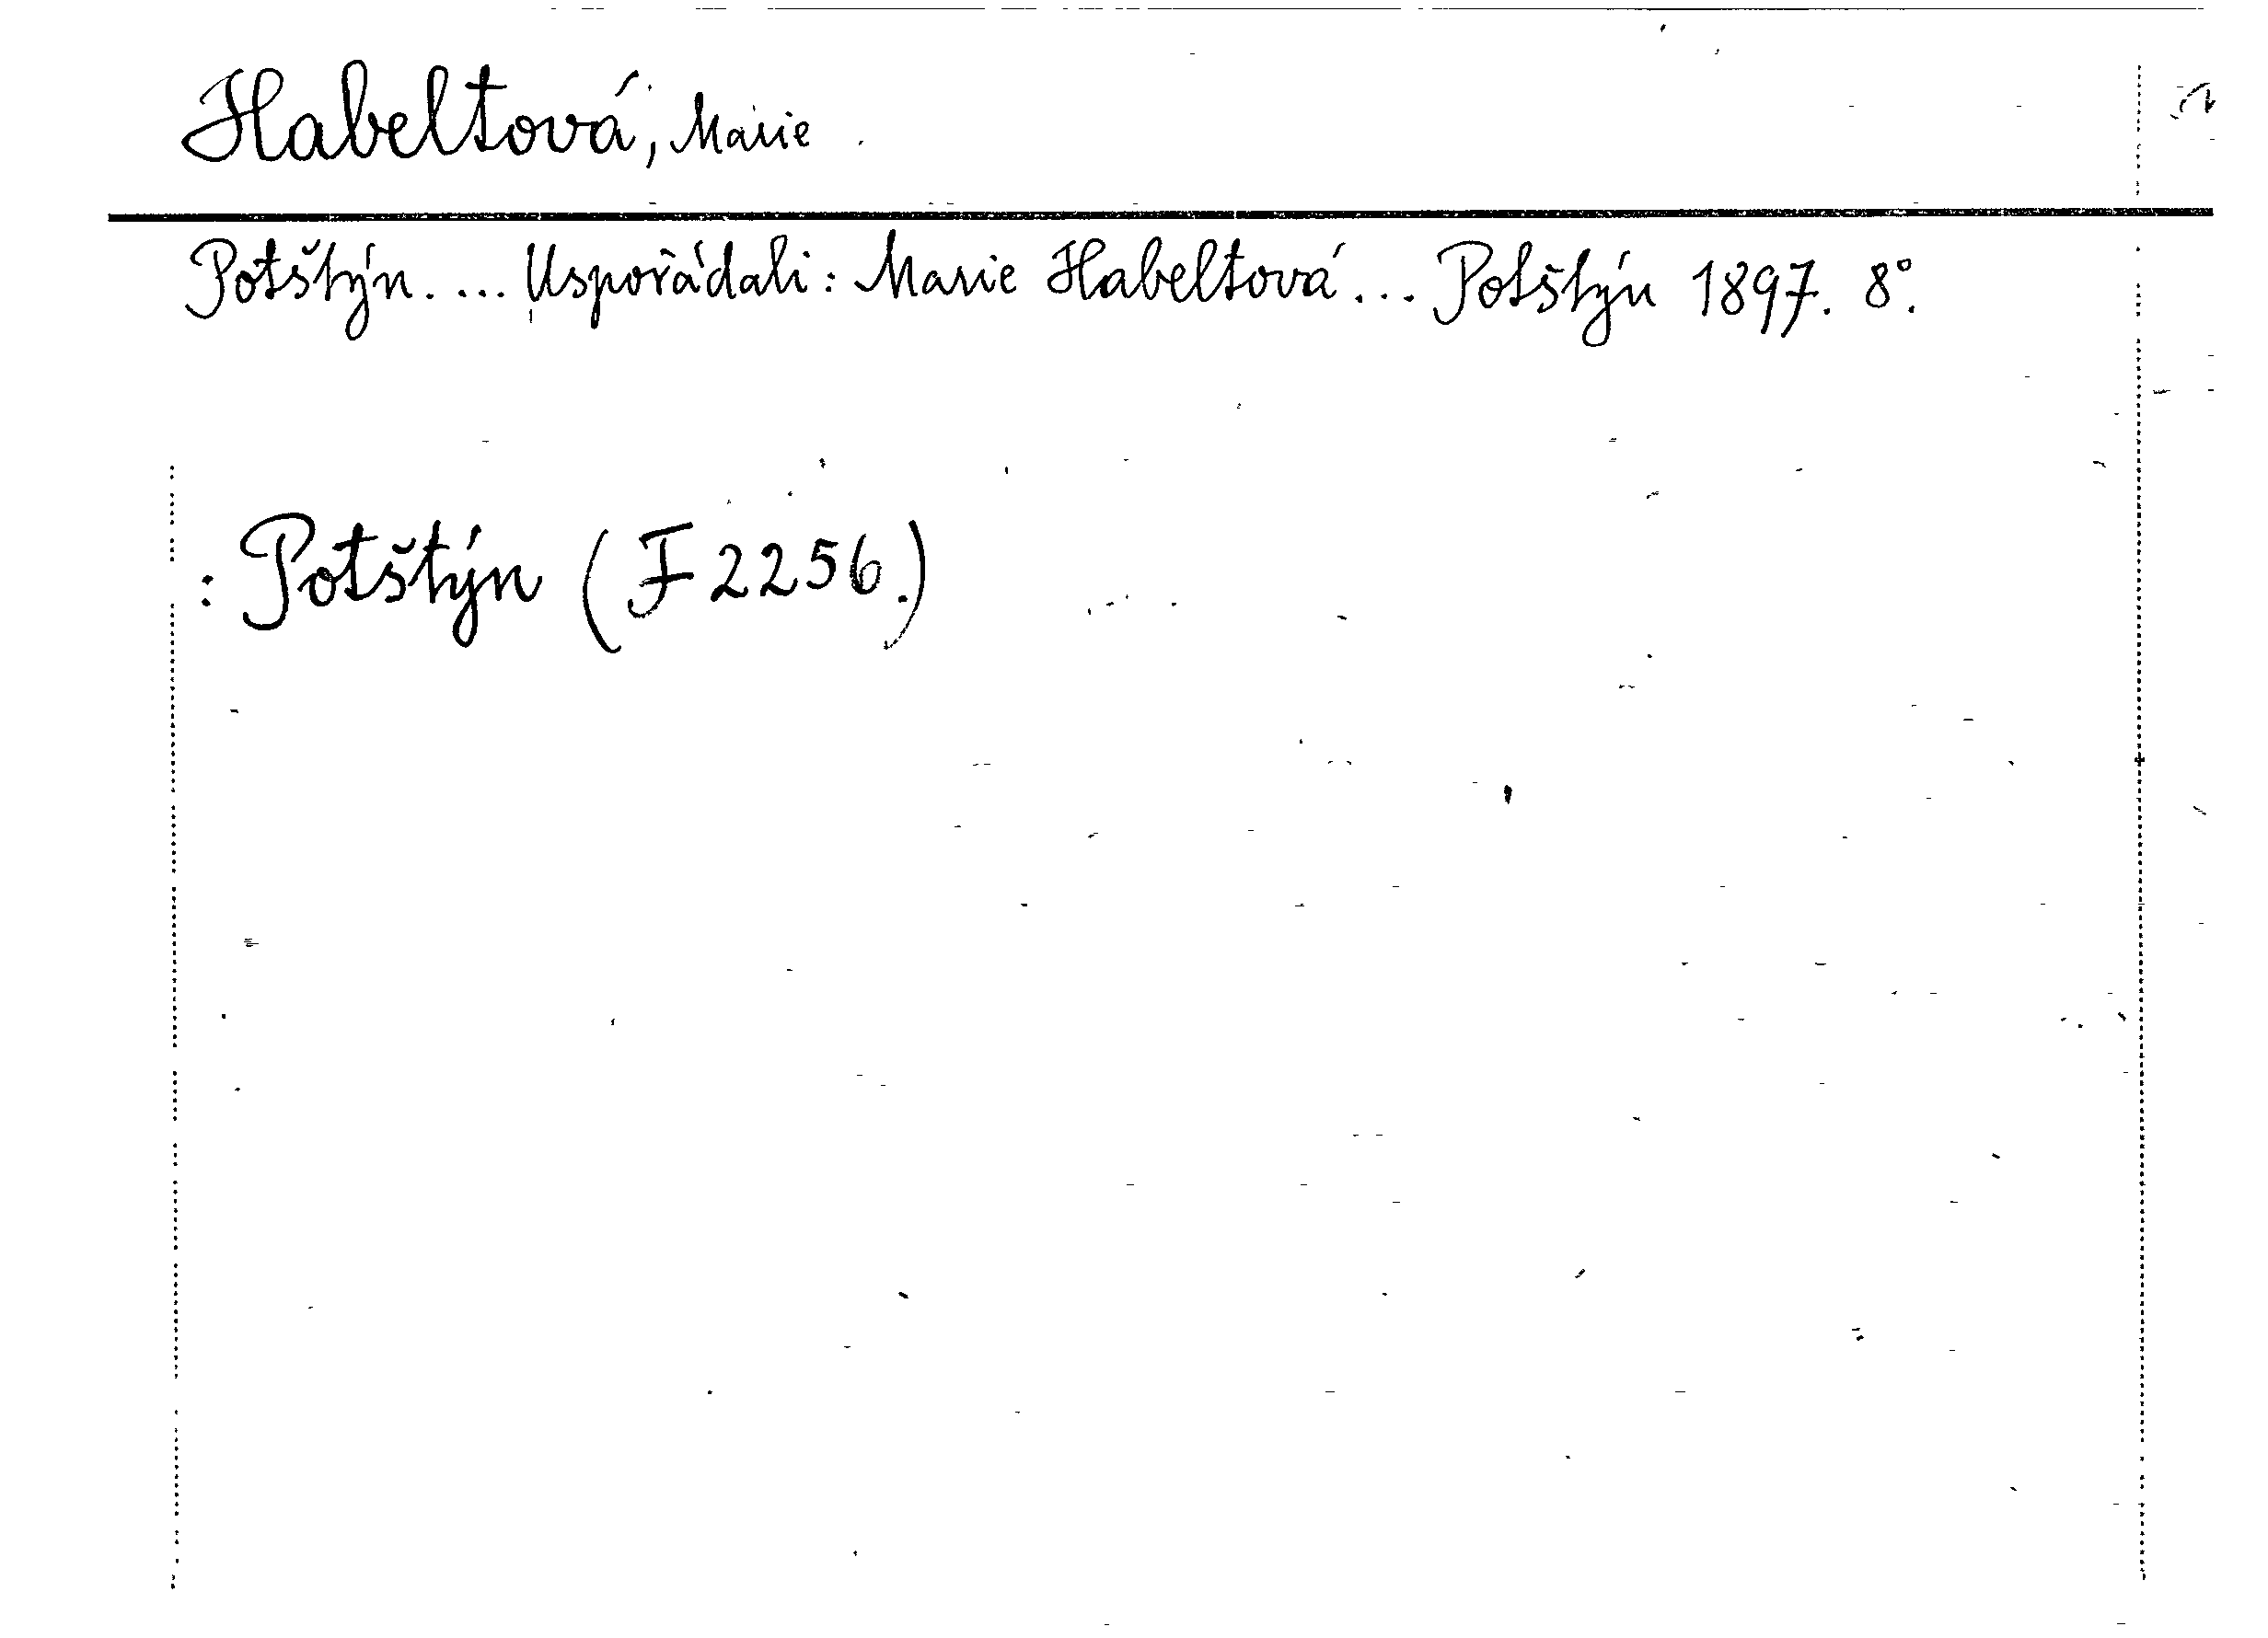 Habeltová, Marie
Potštýn. ... Uspořádali: Marie Habeltová... Potštýn 1897. 8°.
: Potštýn (F 2256.)